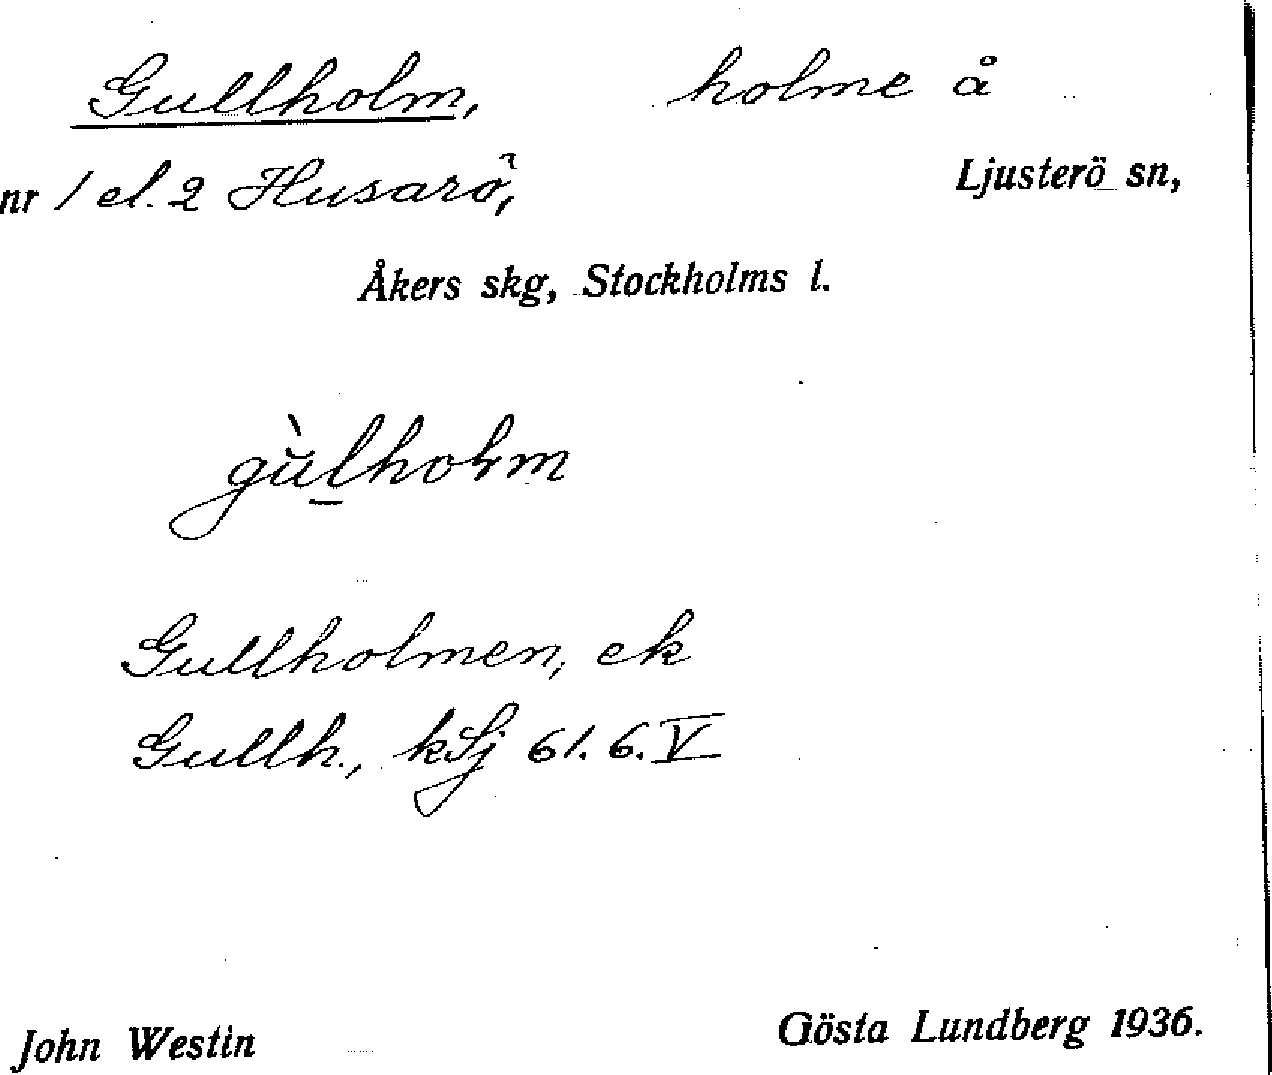 Gullholm, holme å
nr 1 el. 2 Husarö, Ljusterö sn,
Åkers skg, Stockholms l.
gùlholm
Gullholmen, ek
Gullh., kSj 61. 6. V
John Westin Gösta Lundberg 1936.